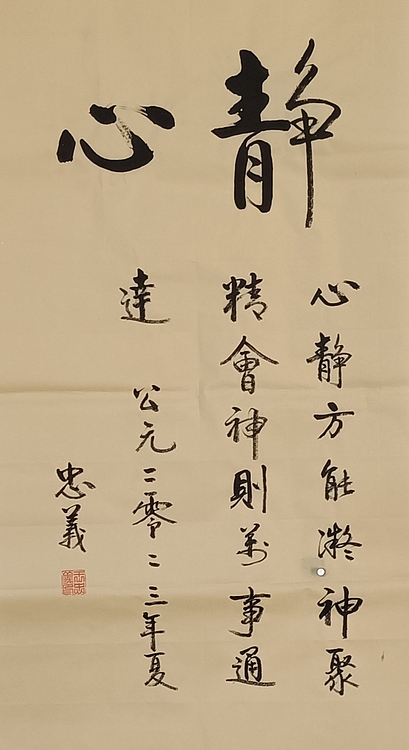 靜心
心靜方能凝神聚
精會神則萬事通
達 公元二零二三年夏
忠義